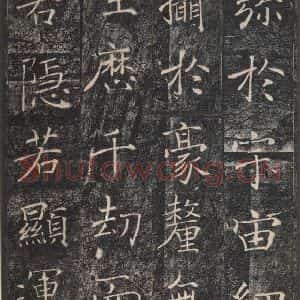 弥於宇宙細
攝於豪釐無
生厯千劫而
若隱若顯運
Shufawang.cn